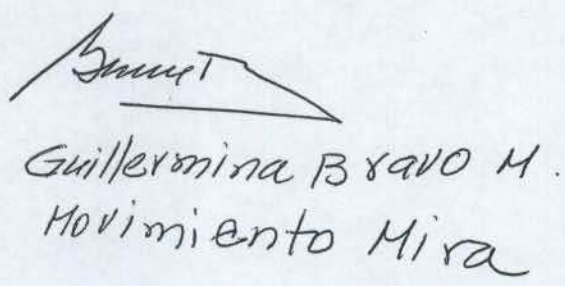 Guillermina Bravo M.
Movimiento Mira